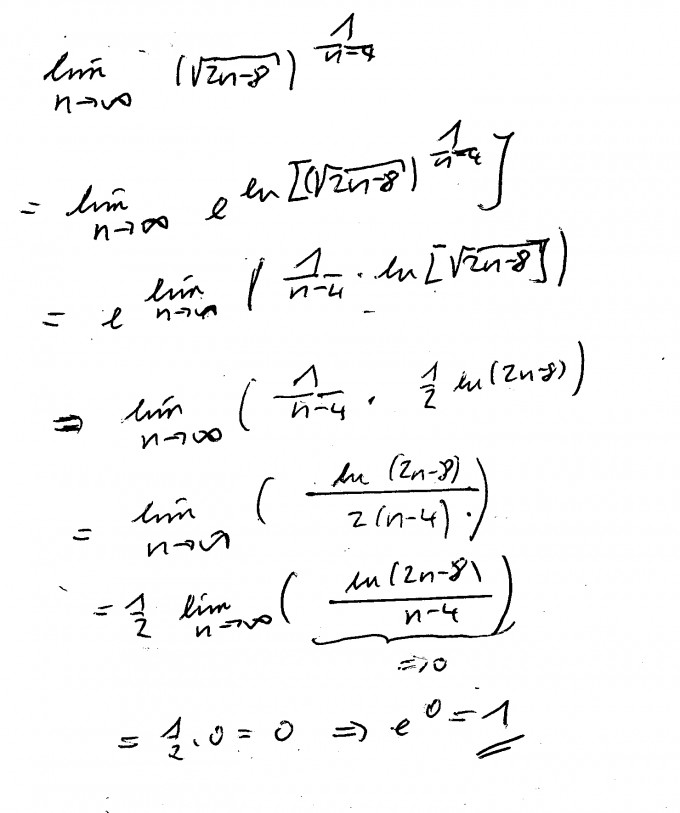 lim n→∞ (√(2n-8))^(1/(n-4))
= lim n→∞ e^(ln[(√(2n-8))^(1/(n-4))])
= e^(lim n→∞ (1/(n-4) · ln[√(2n-8)]))
⇒ lim n→∞ (1/(n-4) · 1/2 ln(2n-8))
= lim n→∞ (ln(2n-8)/(2(n-4)))
= 1/2 lim n→∞ (ln(2n-8)/(n-4))
⇒0
= 1/2 · 0 = 0 ⇒ e^0 = 1